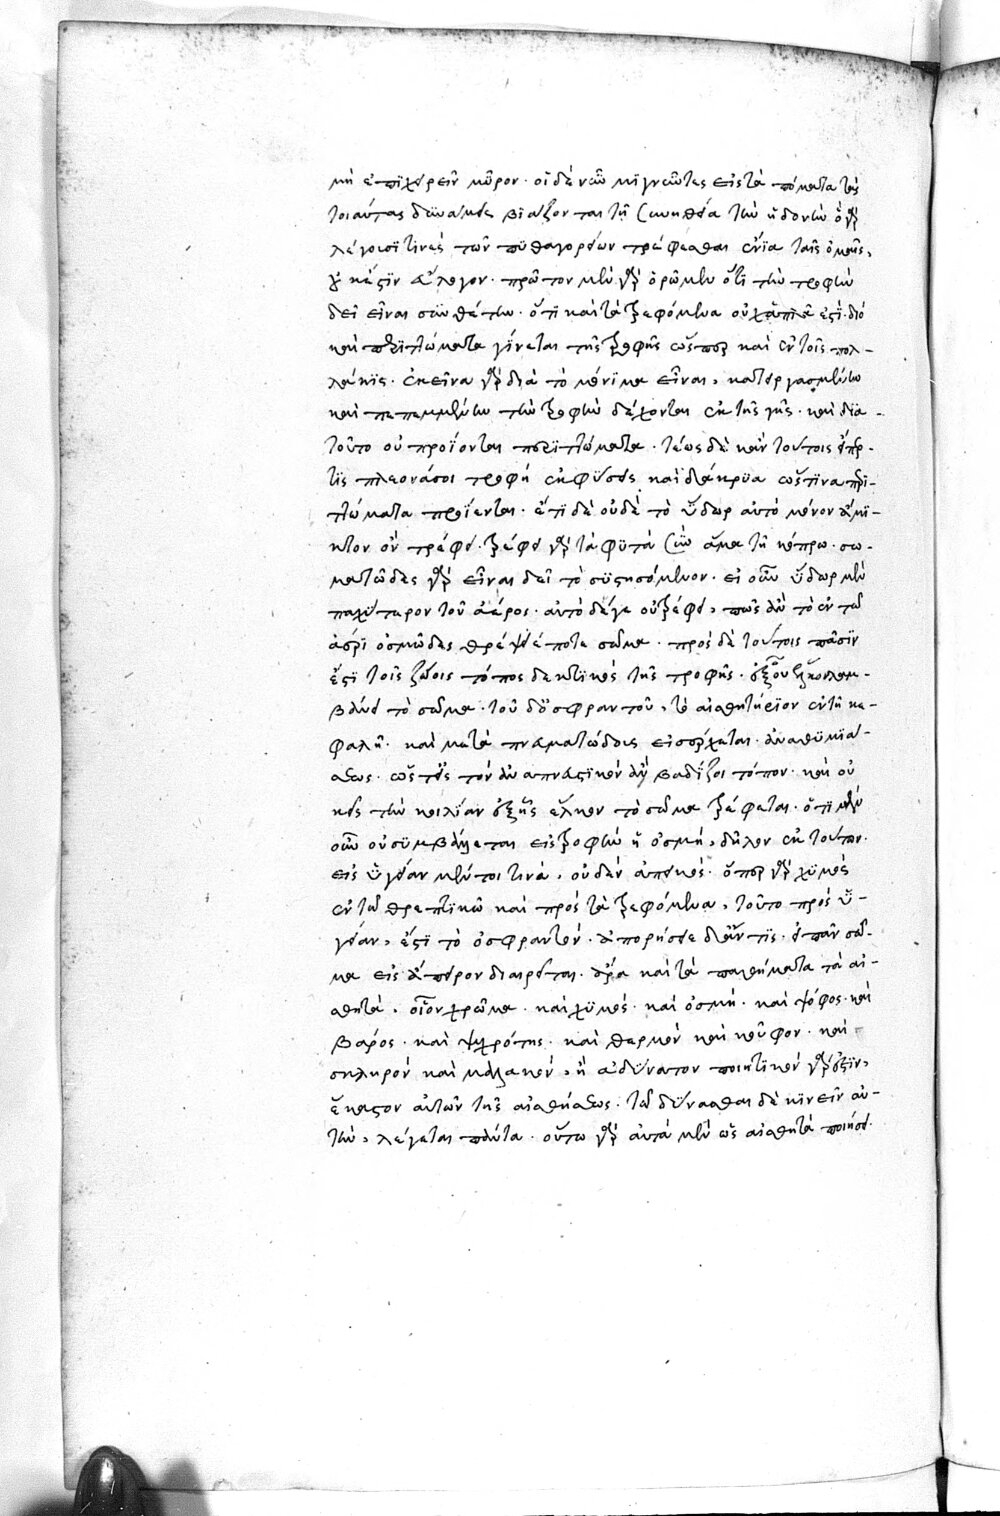 μὴ ἐπιχέειν μῦρον· οἱ δὲ νῦν μιγνῦντες εἰς τὰ πόματα τὰς
τοιαύτας δυνάμεις βιάζονται τῇ συνηθεία τὴν ἡδονὴν ὃ γὰρ
λέγουσί τινες τῶν πυθαγορείων τρέφεσθαι ἔνϊα ταῖς ὀσμαῖς,
οὐκ ἔστιν εὔλογον· πρῶτον μὲν γὰρ ὁρῶμεν ὅτι τὴν τροφὴν
δεῖ εἶναι συνθέτην· ὅτι καὶ τὰ τρεφόμενα οὐχ ἁπλᾶ ἐστί· διὸ
καὶ περιττώματα γίνεται τῆς τροφῆς ὥσπερ καὶ ἐν τοῖς πολ-
λάκις· ἐκεῖνα γὰρ διὰ τὸ μόνιμα εἶναι, κατειργασμένην
καὶ πεπεμμένην τὴν τροφὴν δέχονται ἐκ τῆς γῆς· καὶ διὰ
τοῦτο οὐ προΐονται περιττώματα· τέως δὲ κἂν τούτοις ὑπερ-
τις πλεονάσοι τροφὴ ἐκφύσει καὶ δάκρυα ὥς τινα περι-
ττώματα προΐενται· ἔτι δὲ οὐδὲ τὸ ὕδωρ αὐτὸ μόνον ἄμι-
κτον ὂν τρέφει· τρέφει γὰρ τὰ φυτὰ σὺν ἅμα τῇ κόπρω· σω-
ματῶδες γὰρ εἶναι δεῖ τὸ συστησόμενον· εἰ οὖν ὕδωρ μὲν
παχύτερον τοῦ ἀέρος· αὐτὸ δέ γε οὐ τρέφει, πῶς ἂν τὸ ἐν τῶ
ἀέρι ὀσμῶδες θρέψέ ποτε σῶμα· πρὸς δὲ τούτοις πᾶσϊν
ἔστι τοῖς ζώοις τόπος δεκτικὸς τῆς τροφῆς· ἐξ οὗ
βάνει τὸ σῶμα· τοῦ δ' ὀσφραντοῦ, τὸ αἰσθητήριον ἐν τῇ κε-
φαλῇ· καὶ μετὰ πνευματώδους εἰσέρχεται ἀναθυμιά-
σεως· ὥστ' εἰς τὸν ἀναπνευστικὸν ἂν βαδίζοι τόπον· καὶ οὐκ
εἰς τὴν κοιλίαν ἐξ ἧς ἕλκον τὸ σῶμα τρέφεται· ὅτι μὲν
οὖν οὐ συμβάλλεται εἰς τροφὴν ἡ ὀσμή, δῆλον ἐκ τούτων·
εἰς ὑγείαν μέντοι τινὰ, οὐδὲν ἀπεικός· ὅπερ γὰρ χυμὸς
ἐν τῶ θρεπτικῶ καὶ πρὸς τὰ τρεφόμενα, τοῦτο πρὸς ὑ-
γείαν, ἐστὶ τὸ ὀσφραντόν· ἀπορήσειε δ' ἄν τις· εἰ πᾶν σῶ-
μα εἰς ἄπειρον διαιρεῖται· ἆρα καὶ τὰ παθήματα τὰ αἰ-
σθητά, οἷον χρῶμα· καὶ χυμός· καὶ ὀσμή· καὶ ψόφος· καὶ
βάρος· καὶ ψυχρότης· καὶ θερμὸν καὶ κοῦφον· καὶ
σκληρὸν καὶ μαλακόν, ἢ ἀδύνατον ποιητικὸν γάρ ἐστϊν,
ἕκαστον αὐτῶν τῆς αἰσθήσεως· τῶ δύνασθαι δὲ κινεῖν αὐ-
τὴν, λέγεται πάντα· οὕτω γὰρ αὐτὰ μὲν ὡς αἰσθητὰ ποιήσει·